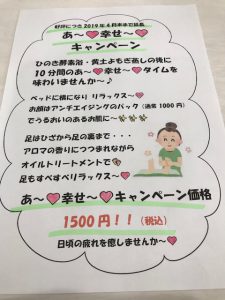 好評につき2019年6月末まで延長
あ～❤幸せ～❤
キャンペーン
ひのき酵素浴・黄土よもぎ蒸しの後に
10分間のあ～❤幸せ～❤タイムを
味わいませんか～♪
ベッドに横になり リラックス～❤
お顔はアンチエイジングのパック（通常1000円）
でうるおいのあるお肌に～
足はひざから足の裏まで・・・
アロマの香りにつつまれながら
オイルトリートメントで
足もすべすべリラックス～❤
あ～❤幸せ～❤キャンペーン価格
1500円！！（税込）
日頃の疲れを癒しませんか～❤